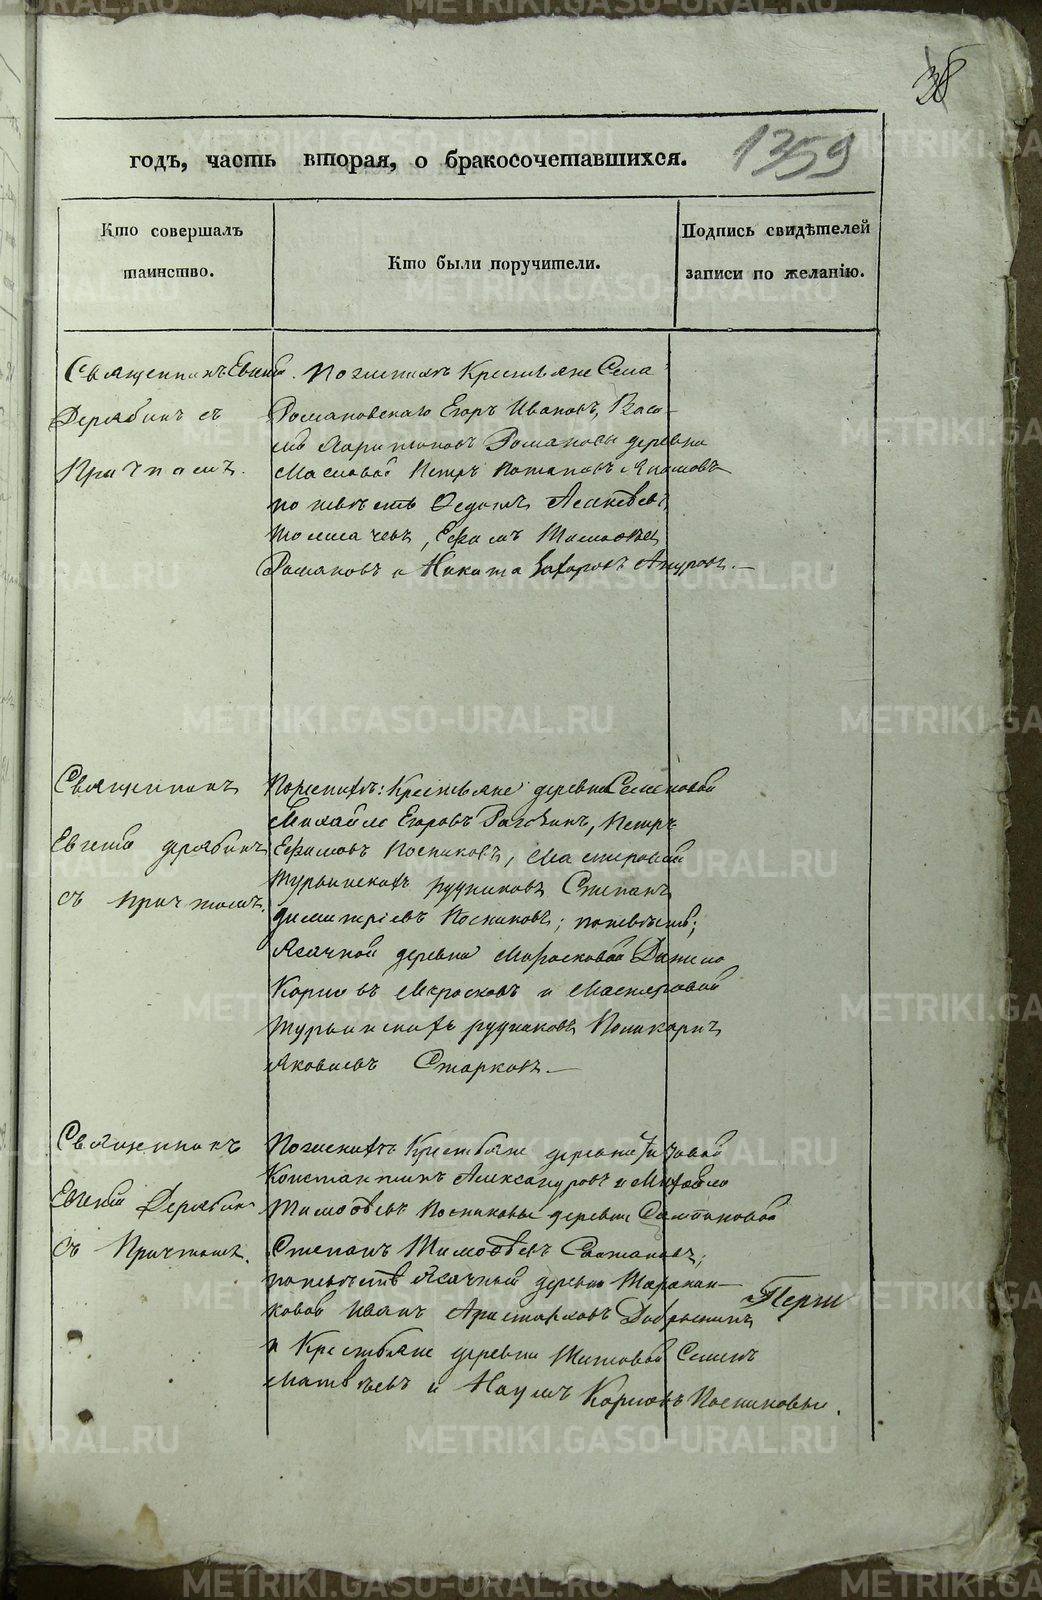 38
1359
годъ, часть вторая, о бракосочетавшихся.
Кто совершалъ
таинство.
Кто были поручители.
Подпись свидѣтелей
записи по желанію.
Священникъ Евгеній
Дерябинъ съ
Причтомъ.
По женихѣ Крестьяне Села
Романовскаго Егоръ Ивановъ, Васи-
лій Харитоновъ Романовы деревни
Масловой Петръ Потаповъ
по невѣстѣ Федотъ Алексѣевъ
Толмачевъ, Ефимъ Тимофѣевъ
Романовъ и Никита Захаровъ
Священникъ
Евгеній Дерябинъ
съ причтомъ.
По женихѣ: Крестьяне деревни
Михайло Егоровъ Петръ
Ефимовъ Посниковъ, Мастеровой
Турьинскихъ рудниковъ Степанъ
Димитріевъ Посниковъ; по невѣстѣ;
Ясачной деревни Морозковой Данило
Карповъ Морозковъ и Мастеровой
Турьинскихъ рудниковъ Поликарпъ
Яковлевъ Старковъ.
Священникъ
Евгеній Дерябинъ
съ Причтомъ.
По женихѣ Крестьяне деревни Титовой
Константинъ Александровъ и Михайло
Тимофѣевъ Посниковы деревни
Степанъ Тимофѣевъ
по невѣстѣ Ясачный деревни Тарань-
ковой Иванъ Аристарховъ Добрынинъ
и Крестьяне деревни Титовой Семенъ
Матвѣевъ и Наумъ Карповъ Посниковы.
METRIKI.GASO-URAL.RU